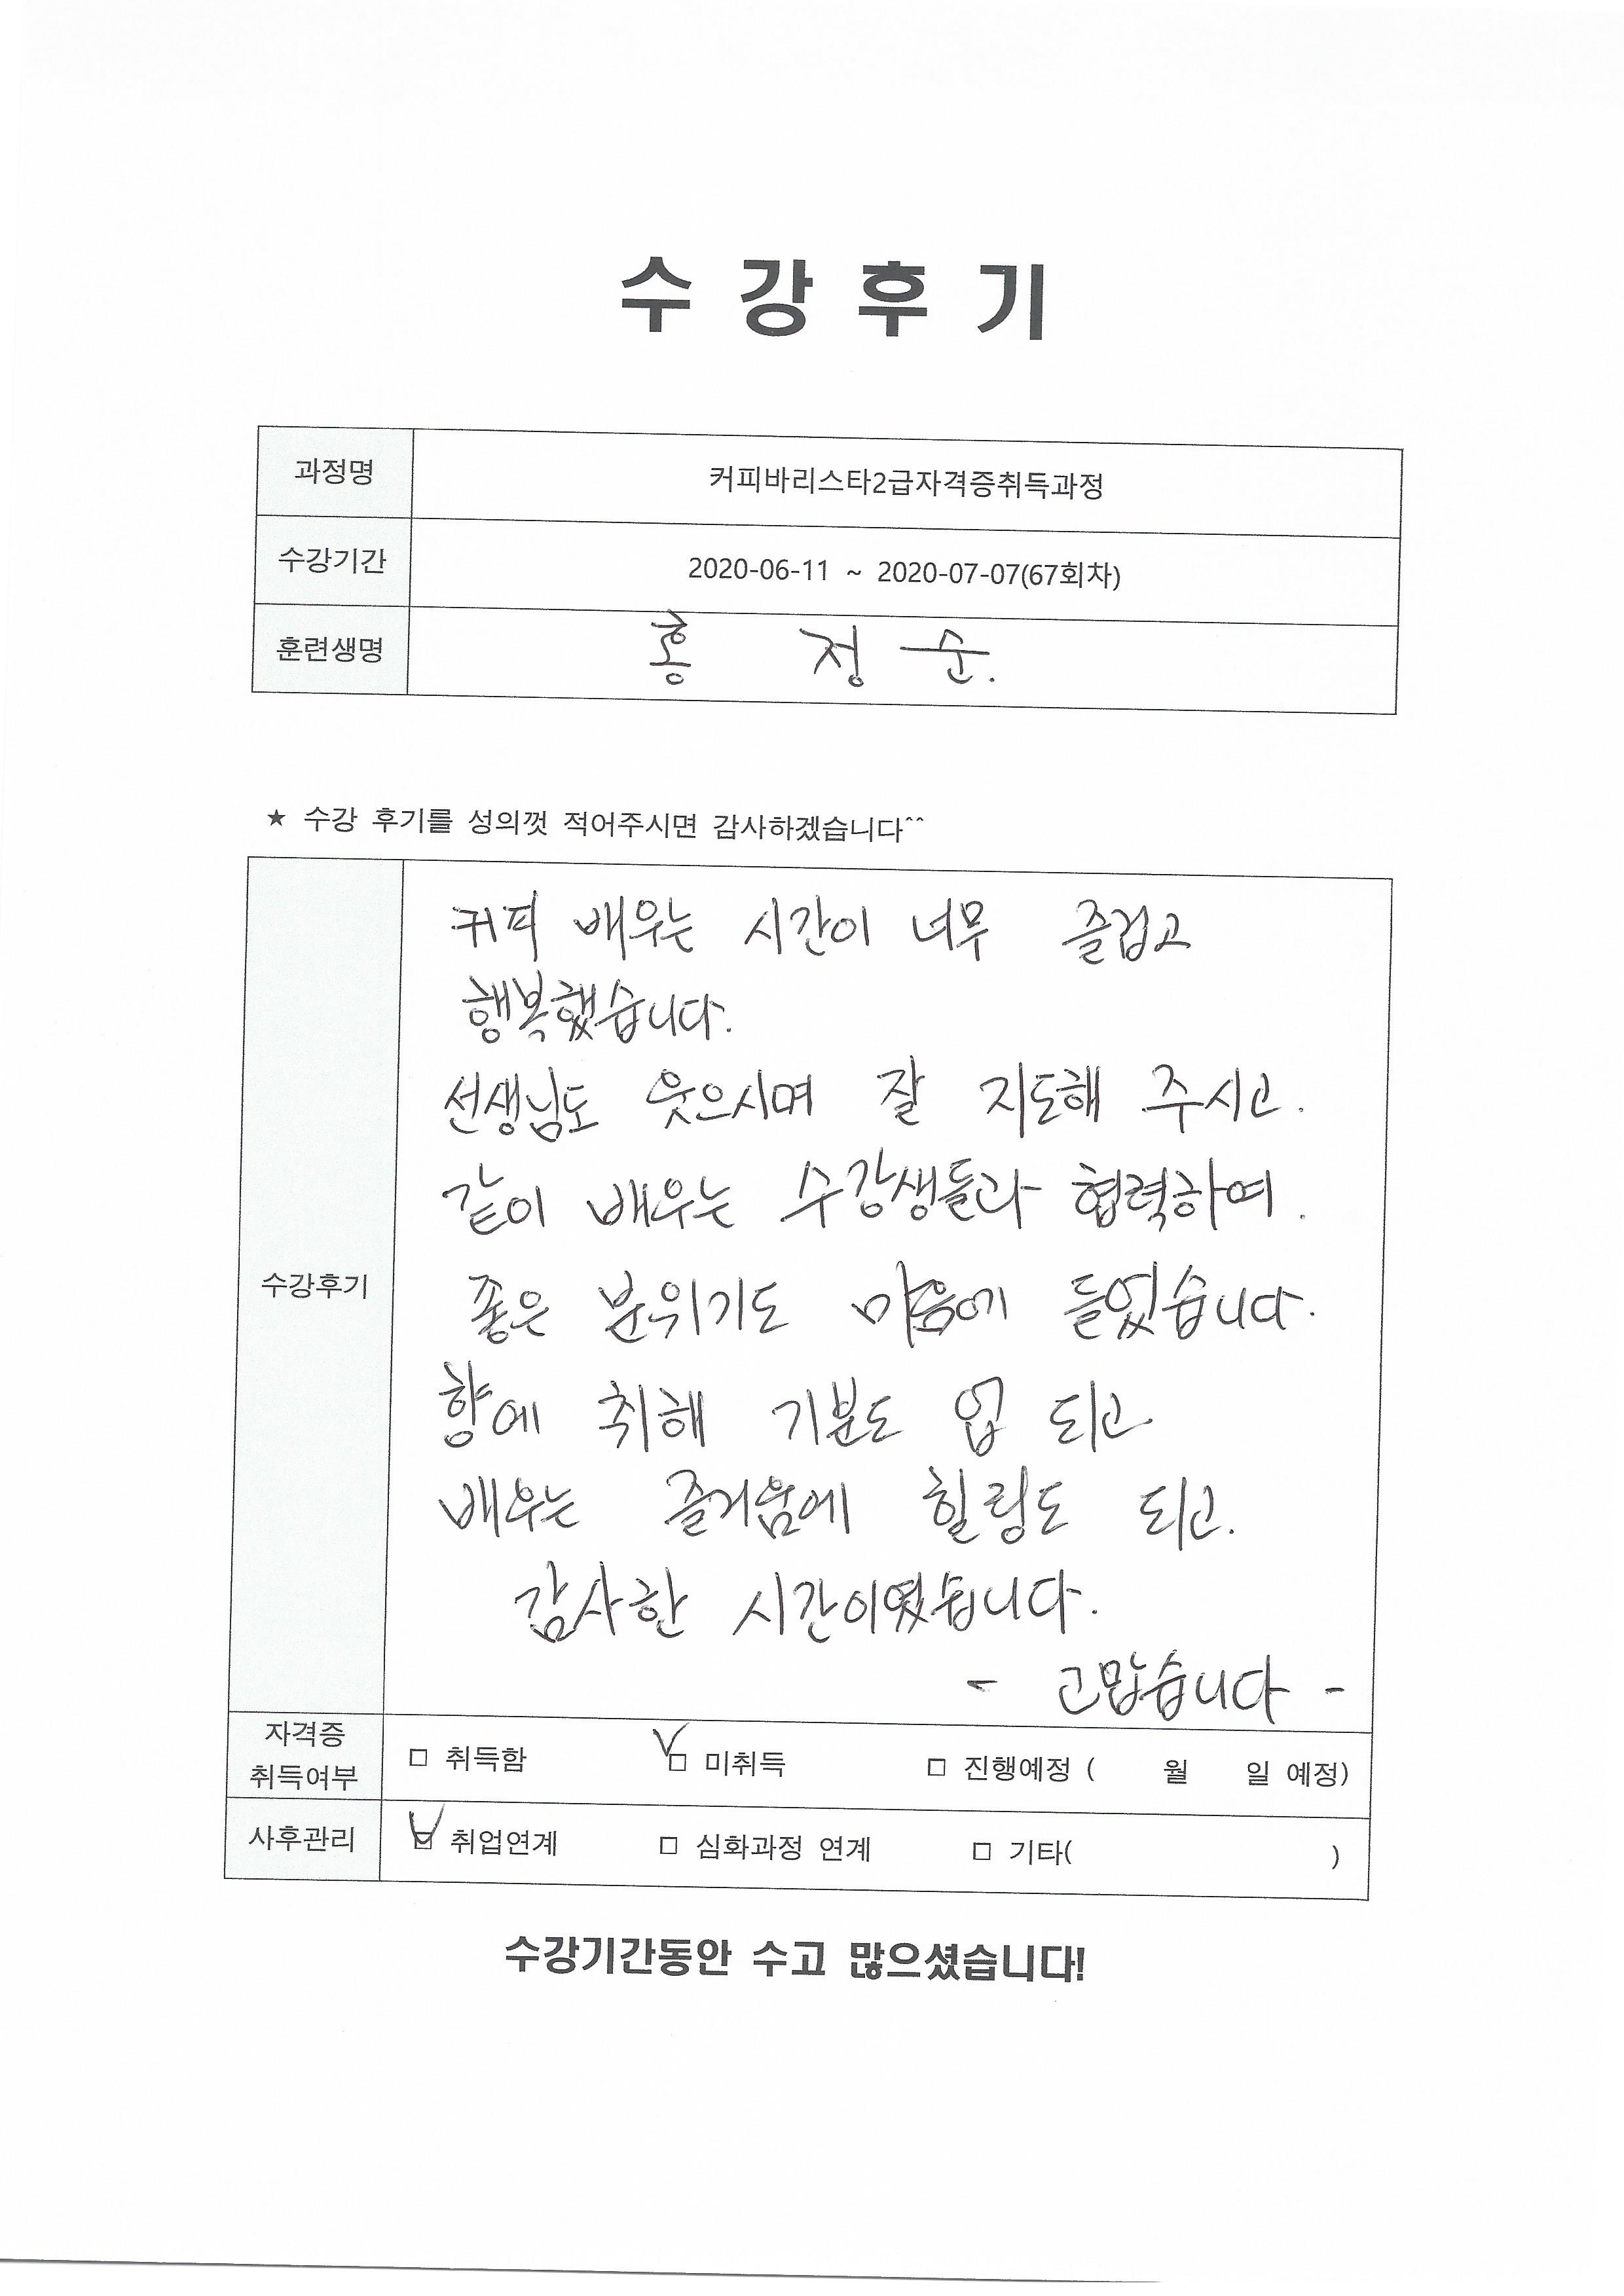 수 강 후 기
과정명 커피바리스타2급자격증취득과정
수강기간 2020-06-11 ~ 2020-07-07(67회차)
훈련생명 홍 정 순.
★ 수강 후기를 성의껏 적어주시면 감사하겠습니다^^
수강후기
커피 배우는 시간이 너무 즐겁고
행복했습니다.
선생님도 웃으시며 잘 지도해 주시고.
같이 배우는 수강생들과 협력하여.
좋은 분위기도 마음에 들었습니다.
향에 취해 기분도 업 되고
배우는 즐거움에 힐링도 되고.
감사한 시간이였습니다.
- 고맙습니다 -
자격증
취득여부 □ 취득함 V□ 미취득 □ 진행예정 ( 월 일 예정)
사후관리 V□ 취업연계 □ 심화과정 연계 □ 기타( )
수강기간동안 수고 많으셨습니다!